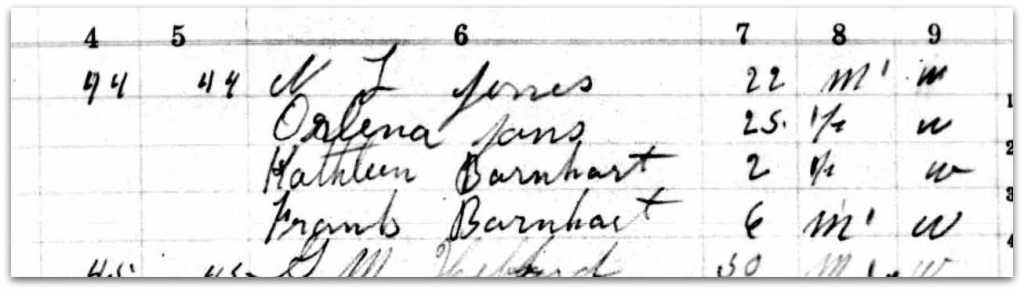 4 5 6 7 8 9
44 44 N L Jones 22 m w
Orlena Jons 25 w 1
Kathleen Barnhart 2 w 2
Frank Barnhart 6 m w 3
45 45 M 30 M w 4